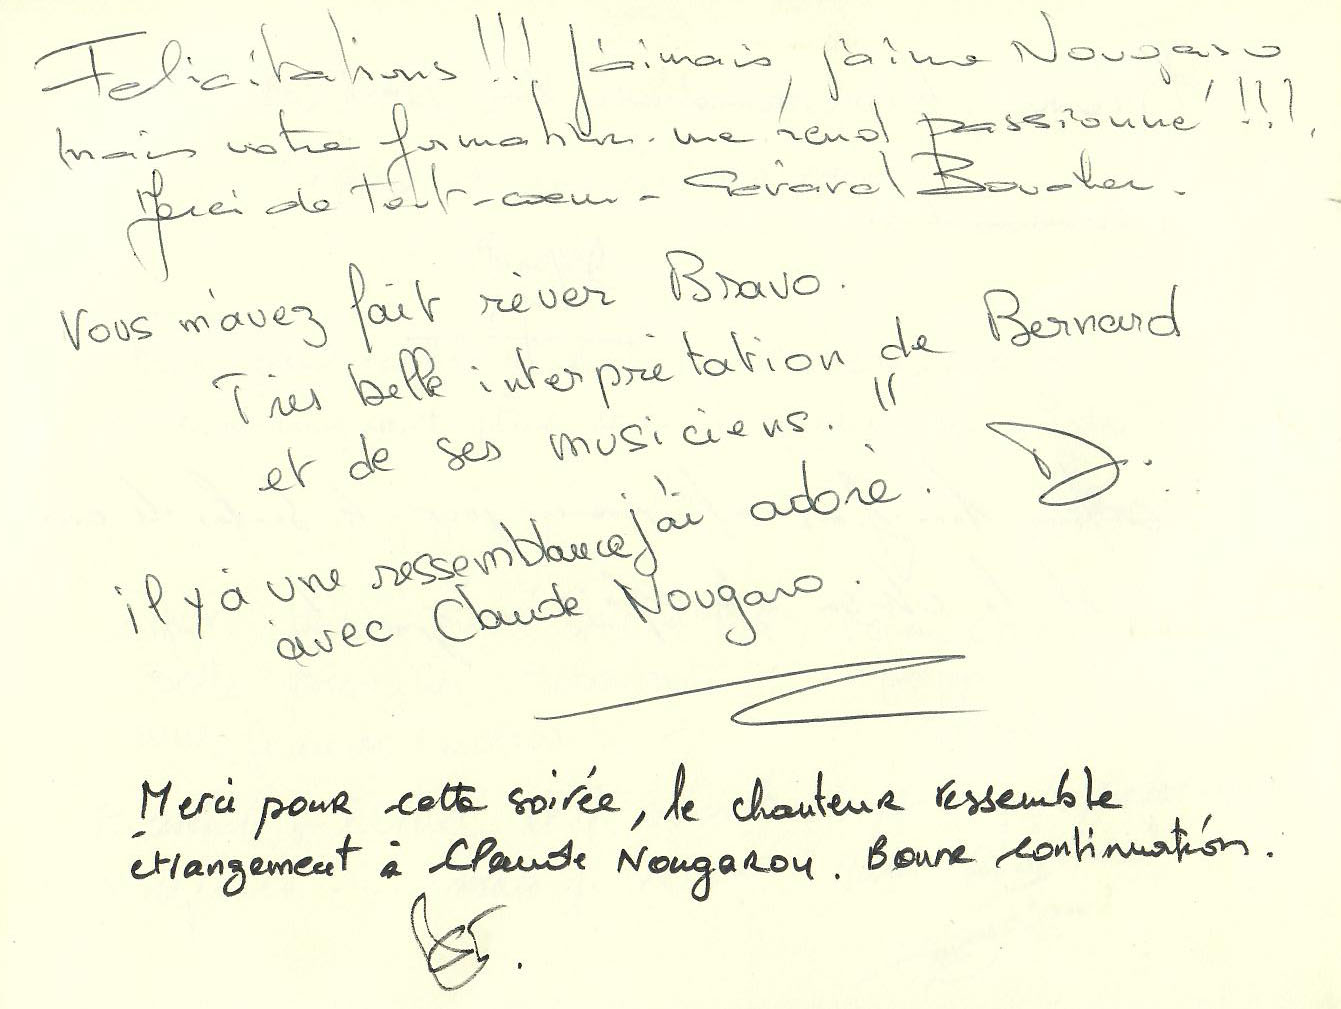 Felicitations !!! J'aimais, j'aime Nougaro
mais votre formation me rend passionné !!!.
Merci de tout-coeur - Gérard
Vous m'avez fait rêver Bravo.
Très belle interprétation de Bernard
et de ses musiciens. "
j'ai adoré.
il y à une ressemblance
avec Claude Nougaro.
Merci pour cette soirée, le chanteur ressemble
étrangement à Claude Nougarou. Bonne continuation.